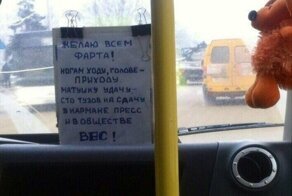 ЖЕЛАЮ ВСЕМ
ФАРТА!
НОГАМ ХОДУ, ГОЛОВЕ -
ПРИХОДУ
МАТУШКУ УДАЧУ -
СТО ТУЗОВ НА СДАЧУ
В КАРМАНЕ ПРЕСС
И В ОБЩЕСТВЕ
ВЕС!